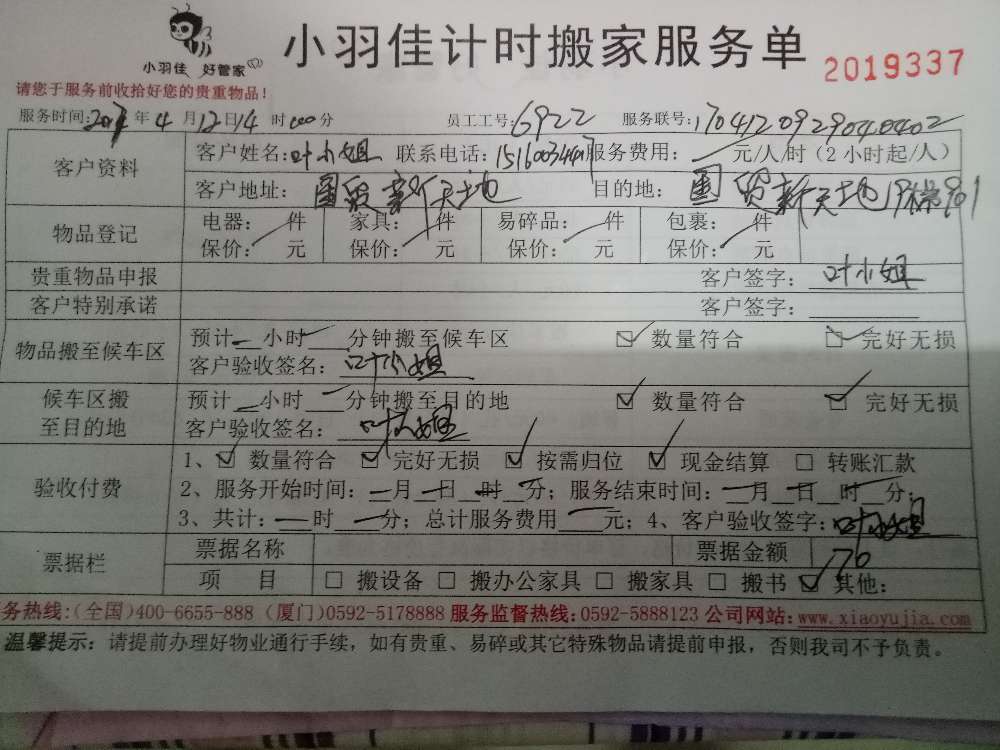 小羽佳 好管家
小羽佳计时搬家服务单
2019337
请您于服务前收拾好您的贵重物品！
服务时间:2017年4月12日14时00分 员工工号:6922 服务联号:170412092904040​2
客户资料 客户姓名:叶小姐 联系电话: 服务费用: 元/人/时（2小时起/人）
客户地址: 国贸新天地 目的地: 国贸新天地19梯901
物品登记 电器: 件 家具: 件 易碎品: 件 包裹: 件
保价: 元 保价: 元 保价: 元 保价: 元
贵重物品申报 客户签字: 叶小姐
客户特别承诺 客户签字:
物品搬至候车区 预计 小时 分钟搬至候车区 ☑ 数量符合 ☑ 完好无损
客户验收签名: 叶小姐
候车区搬至目的地 预计 小时 分钟搬至目的地 ☑ 数量符合 ☑ 完好无损
客户验收签名: 叶小姐
验收付费 1、☑ 数量符合 ☑ 完好无损 ☑ 按需归位 ☑ 现金结算 □ 转账汇款
2、服务开始时间: 月 日 时 分; 服务结束时间: 月 日 时 分;
3、共计: 时 分; 总计服务费用 元; 4、客户验收签字: 叶小姐
票据栏 票据名称 票据金额 70
项 目 □ 搬设备 □ 搬办公家具 □ 搬家具 □ 搬书 ☑ 其他:
务热线:(全国)400-6655-888 (厦门)0592-5178888 服务监督热线: 0592-5888123 公司网站: www.xiaoyujia.com
温馨提示: 请提前办理好物业通行手续, 如有贵重、易碎或其它特殊物品请提前申报, 否则我司不予负责。